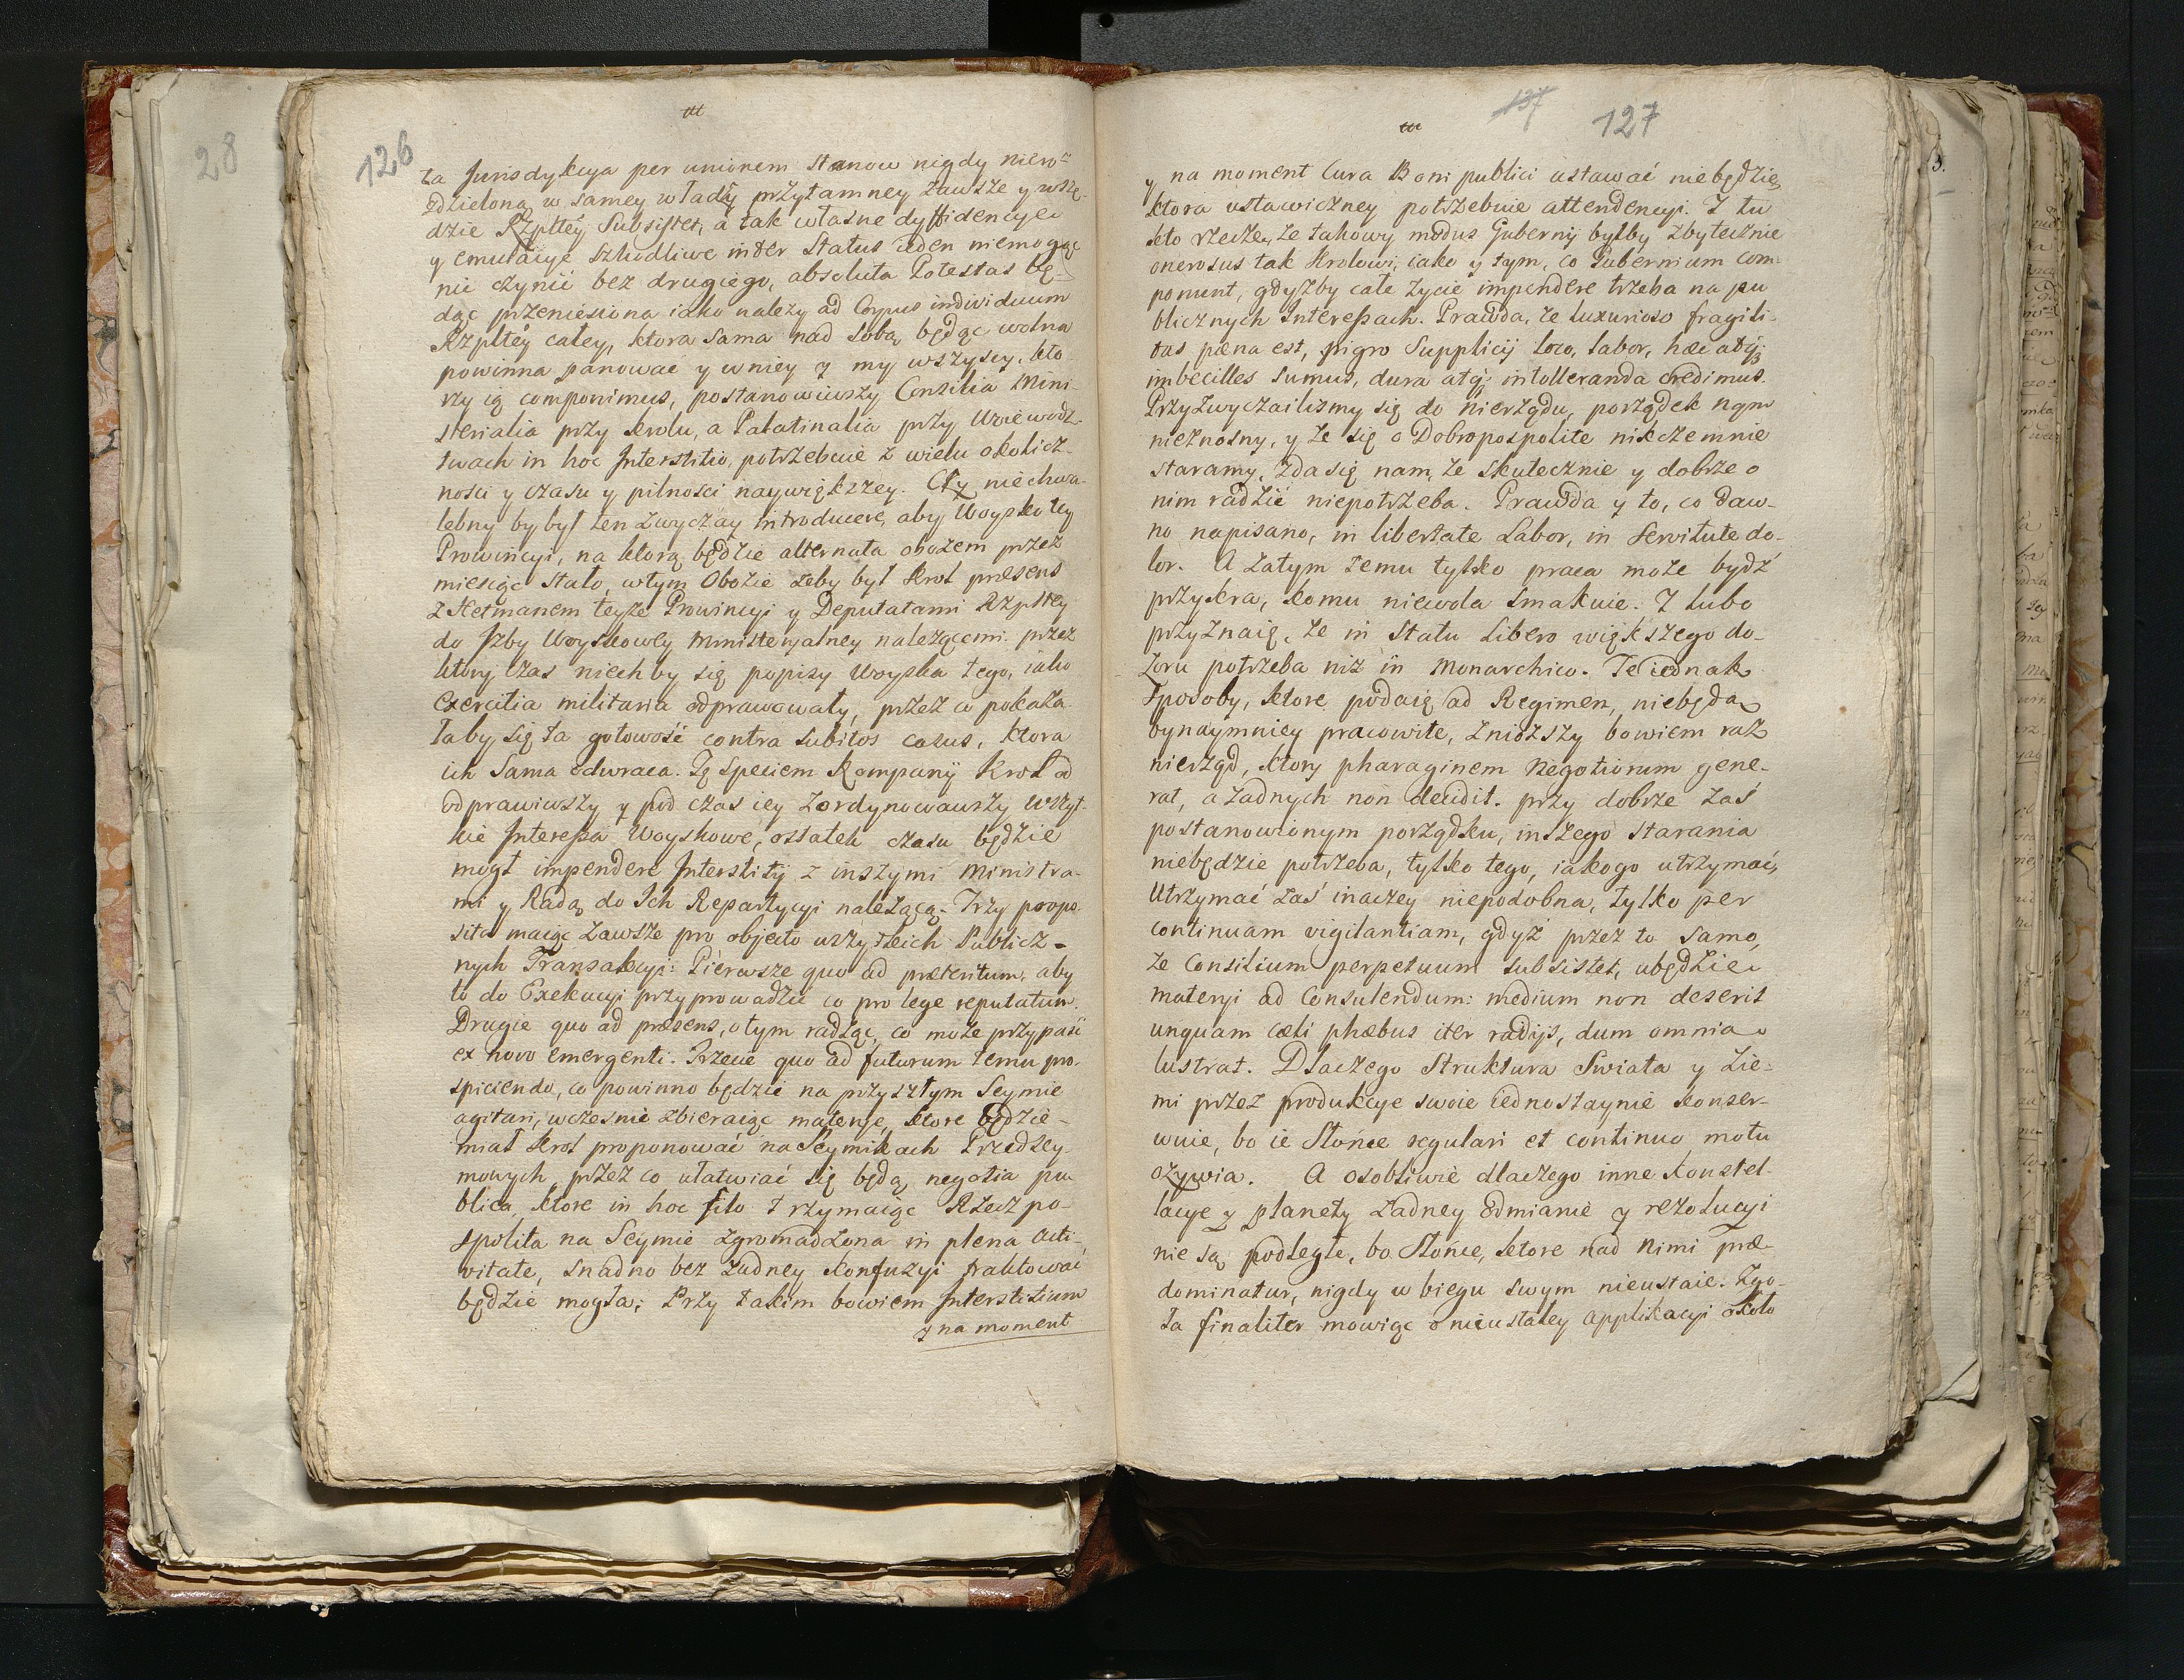 28
126
ta Jurisdykcya per unionem Stanow nigdy niero-
zdzielona w samey władzy przytomney zawsze y wszę-
dzie Rzpltey Subsistet, a tak własne dyffidencye
y emulacye szkodliwe inter Status ieden niemogąc
nic czynić bez drugiego, absoluta Potestas bę-
dąc przeniesiona iako należy ad Corpus individuum
Rzpltey całey, ktora sama nad sobą będąc wolna
powinna panować y w niey y my wszyscy, kto-
rzy ią componimus, postanowiwszy Consilia Mini-
sterialia przy Krolu, a Palatinalia przy Woiewodz-
twach in hoc Interstitio, potrzebuie z wielu okolicz-
ności y czasu y pilności naywiększey. Czy niechwa-
lebny by był ten zwyczay introducere, aby Woysko tey
Prowincyi, na ktorą będzie alternata obozem przez
miesiąc stało, w tym Obozie żeby był Krol præsens
z Hetmanem teyże Prowincyi y Deputatami Rzpltey
do Izby Woyskowey Ministeryalney należącemi przez
ktory czas niechby się popisy Woyska tego, iako
Exercitia militaria odprawowały, przez co pokaza-
łaby się ta gotowość contra subitos casus, ktora
ich sama odwraca. Tę speciem Kompanij Krol
odprawiwszy y pod czas iey zordynowawszy wszyt-
kie Interessa Woyskowe, ostatek czasu będzie
mogł impendere Interstitij z inszymi Ministra-
mi y Radą do Ich Repartycyi należącą. Trzy propo-
sita maiąc zawsze pro objecto wszytkich Publicz-
nych Transakcyi: Pierwsze quo ad præteritum, aby
to do Exekucyi przyprowadzić co pro lege reputatum.
Drugie quo ad præsens, o tym radząc, co może przypaść
ex novo emergenti. Trzecie quo ad futurum temu pro-
spiciendo, co powinno będzie na przyszłym Seymie
agitari, wcześnie zbieraiąc materye, ktore będzie
miał Krol proponować na Seymikach Przedsey-
mowych, przez co ułatwiać się będą negotia pu-
blica, ktore in hoc filo trzymaiąc Rzeczpo-
spolita na Seymie zgromadzona in plena acti-
vitate, snadno bez żadney konfuzyi traktować
będzie mogła; Przy takim bowiem Interstitium
y na moment
137
127
y na moment Cura Boni publici ustawać niebędzie,
ktora ustawiczney potrzebuie attendencyi. I tu
kto rzecze, że takowy modus Gubernij byłby zbytecznie
onerosus tak Krolowi, iako y tym, co Gubernium com-
ponunt, gdyżby całe życie impendere trzeba na pu-
blicznych Interessach. Prawda, że luxurioso fragili-
tas pæna est, pigro Supplicij loco, labor, hæc atq;
imbecilles sumus, dura atq; intolleranda credimus.
Przyzwyczailismy się do nierządu, porządek nam
nieznosny, y że się o Dobropospolite nikczemnie
staramy, zda się nam, że skutecznie y dobrze o
nim radzić niepotrzeba. Prawda y to, co daw-
no napisano, in libertate Labor, in Servitute do-
lor. A zatym temu tylko praca może bydź
przykra, komu niewola smakuie. I lubo
przyznaię, że in Statu libero większego do-
zoru potrzeba niż in Monarchico. Te iednak
sposoby, ktore podaię ad Regimen, niebędą
bynaymniey pracowite, zniozszy bowiem raz
nierząd, ktory pharaginem Negotiorum gene-
rat, a żadnych non decidit. przy dobrze zaś
postanowionym porządku, inszego starania
niebędzie potrzeba, tylko tego, iakogo utrzymać,
Utrzymać zaś inaczey niepodobna, tylko per
continuam vigilantiam, gdyż przez to samo,
że Consilium perpetuum subsistet, ubędzie
materyi ad Consulendum: medium non deserit
unquam cæli phæbus iter radijs, dum omnia
lustrat. Dlaczego Struktura Swiata y Zie-
mi przez produkcye swoie iednostaynie konser-
wuie, bo ie Słońce regulari et continuo motu
ożywia. A osobliwie dlaczego inne Konstel-
lacye y planety żadney odmianie y rezolucyi
nie są podległe, bo Słońce, ktore nad nimi præ-
dominatur, nigdy w biegu swym nieustaie. Zgo-
ła finaliter mowiąc o nieustałey applikacyi około